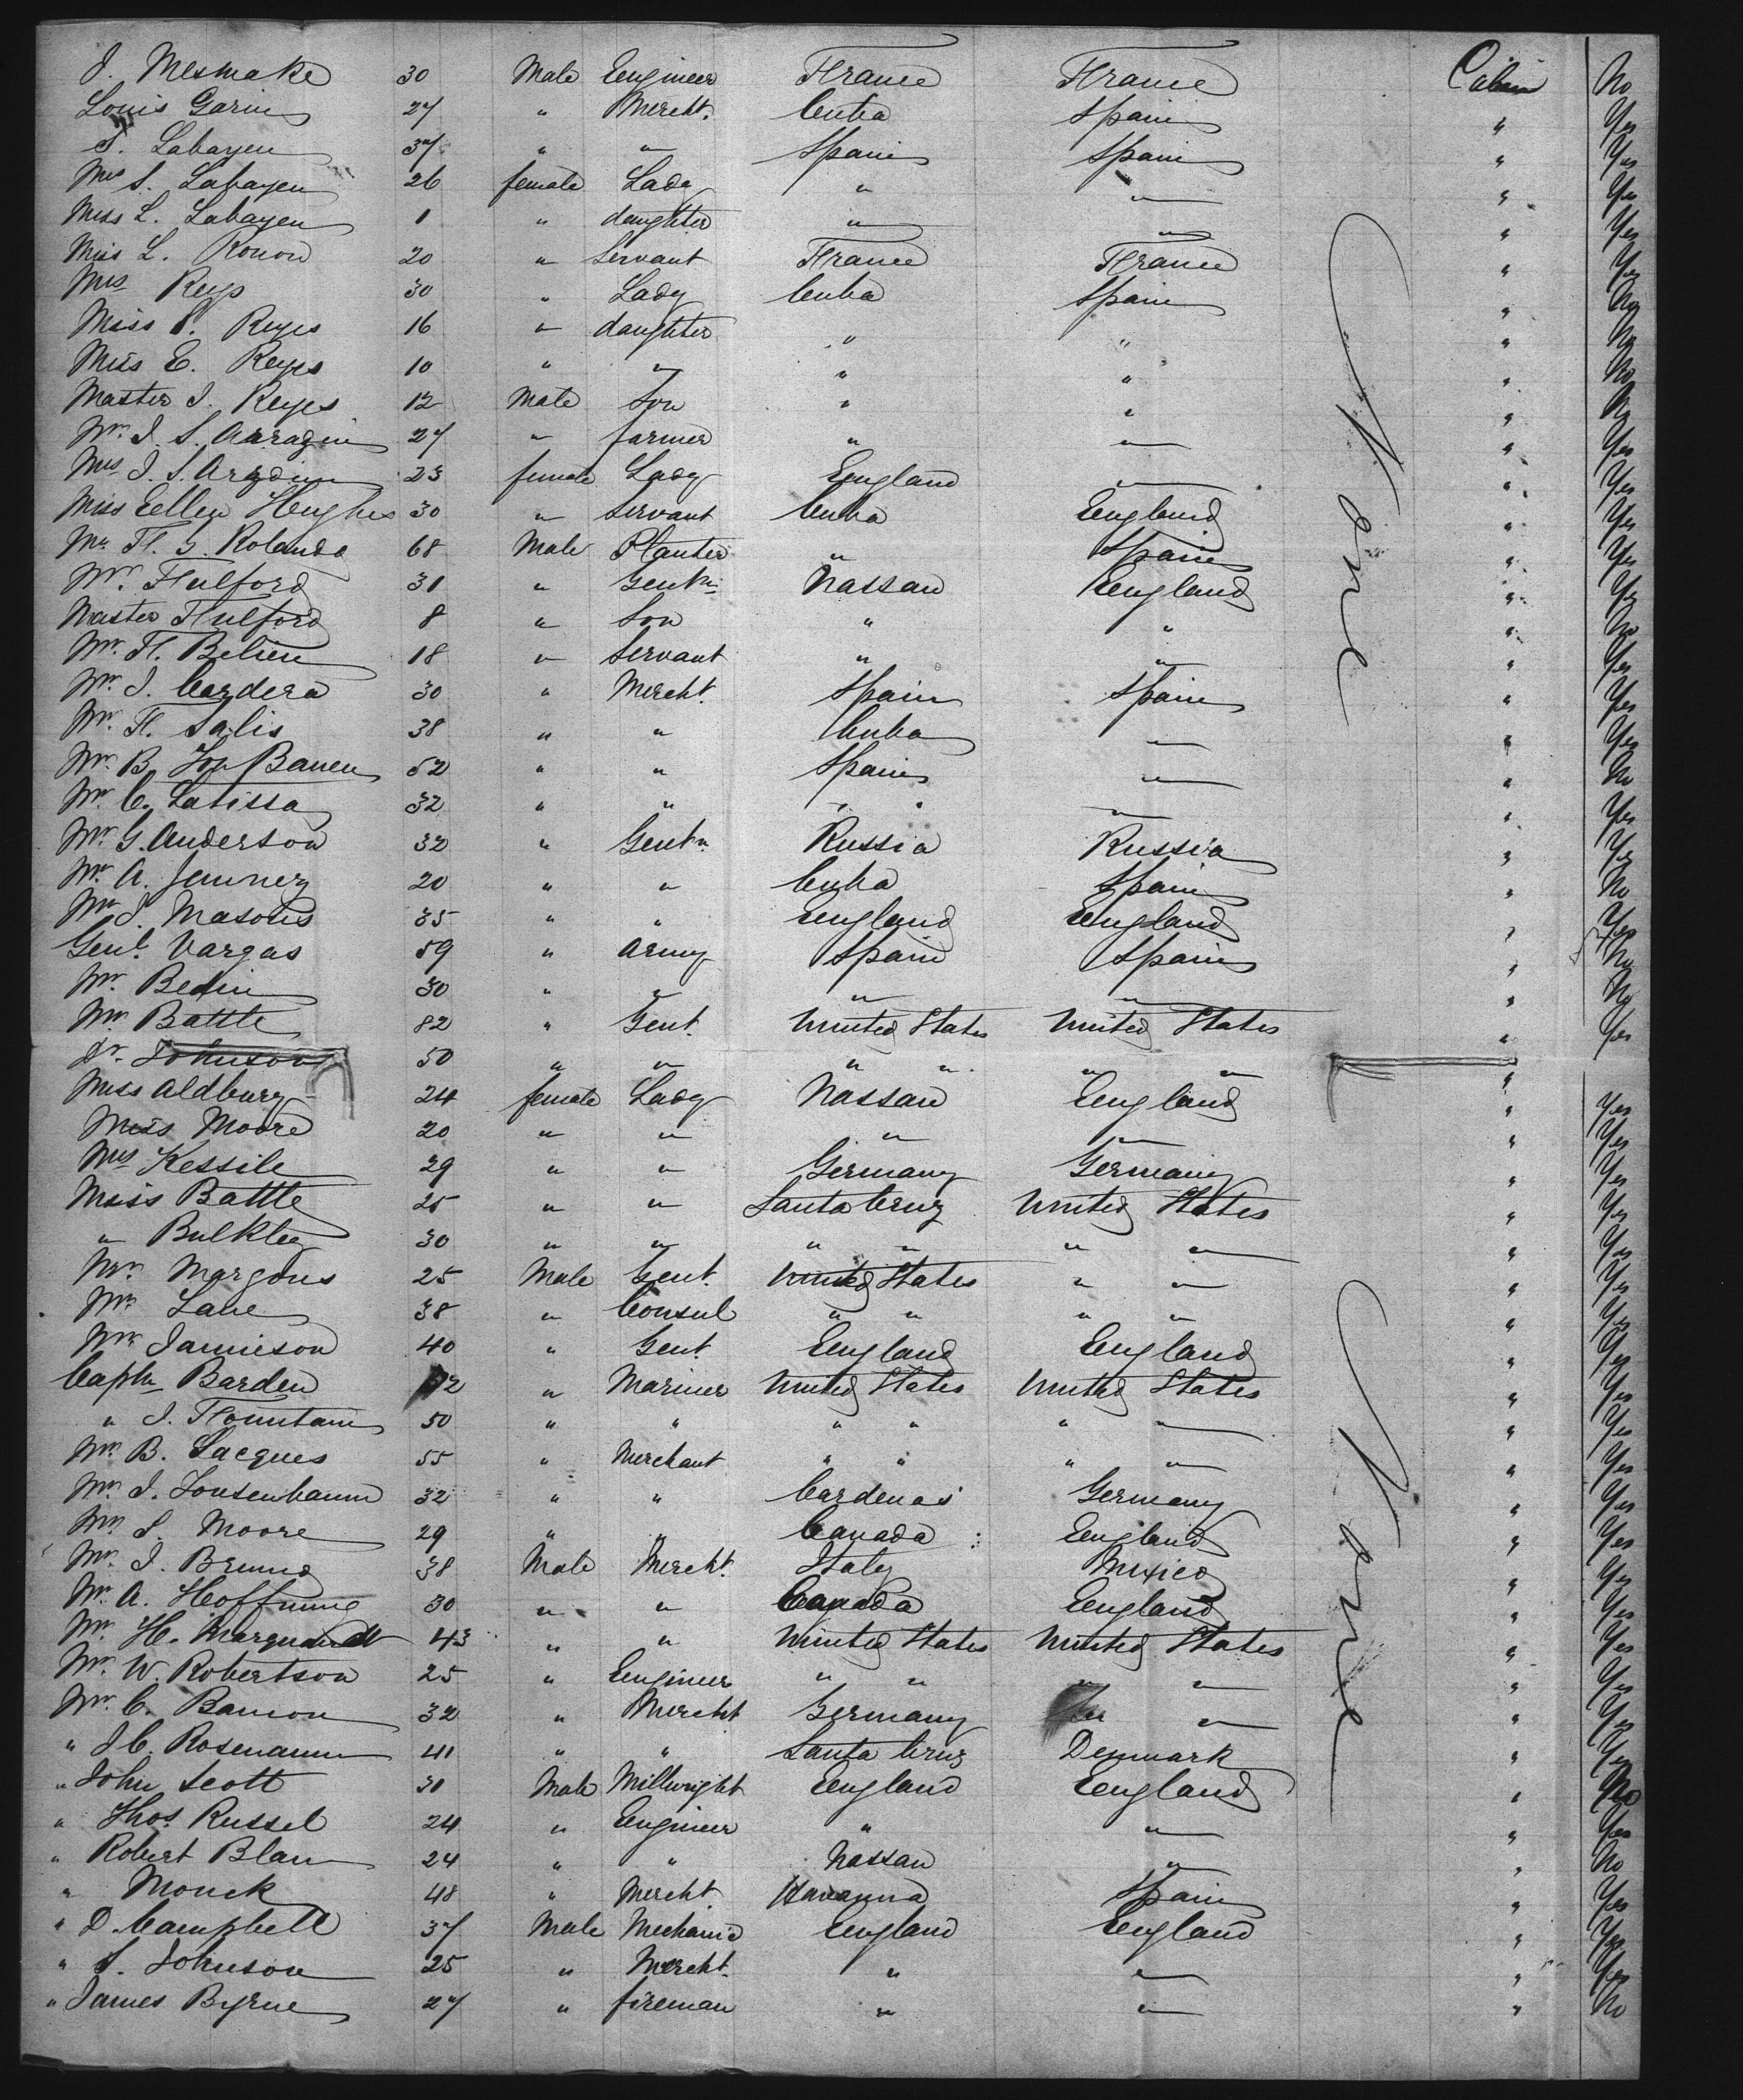 J. Mesmake 30 Male Engineer France France Cabin No
Louis Garin 27 " Mercht. Cuba Spain " Yes
S. Labayen 37 " " Spain Spain " Yes
Mrs S. Labayen 26 female Lady " " " Yes
Miss L. Labayen 1 " daughter " " " Yes
Miss L. Rouon 20 " Servant France France " Yes
Mrs Reys 30 " Lady Cuba Spain " No
Miss P. Reyes 16 " daughter " " " No
Miss E. Reyes 10 " " " " " No
Master J. Reyes 12 Male Son " " " No
Mr. J. S. Arragin 27 " farmer " " " Yes
Mrs J. S. Aragin 23 female Lady England " " Yes
Miss Ellen Hughes 30 " Servant Cuba England " Yes
Mr F. S. Rolando 68 Male Planter " Spain " Yes
Mr. Fulford 31 " Gentn. Nassau England " Yes
Master Fulford 8 " Son " " " No
Mr. F. Belien 18 " Servant " " " Yes
Mr. J. Cardera 30 " Mercht. Spain Spain " Yes
Mr. F. Salis 38 " " Cuba " " Yes
Mr. B. Bauen 52 " " Spain " " No
Mr. C. Latissa 32 " " " " " " Yes
Mr. G. Anderson 32 " Gentn. Russia Russia " Yes
Mr. A. Jennery 20 " " Cuba Spain " No
Mr J. Masons 35 " " England England " Yes
Genl. Vargas 59 " Army Spain Spain " No
Mr. Bedin 30 " " " " " No
Mr. Battle 82 " Gent. United States United States " Yes
Dr. Johnson 50 " " " " " " "
Miss Aldbury 24 female Lady Nassau England " Yes
Miss Moore 20 " " " " " Yes
Mrs Kessile 29 " " Germany Germany " Yes
Miss Battle 25 " " Santa Cruz United States " Yes
" Bulkley 30 " " " " " " " Yes
Mr. Margous 25 Male Gent. United States " " " Yes
Mr. Lane 38 " Consul " " " " " Yes
Mr. Jamieson 40 " Gent. England England " Yes
Captn Barden 52 " Mariner United States United States " Yes
" J. Fountain 50 " " " " " " " Yes
Mr. B. Jacques 55 " Merchant " " " " " Yes
Mr. J. Tousenbaum 32 " " Cardenas Germany " Yes
Mr. S. Moore 29 " " Canada England " Yes
Mr. J. Bruno 38 Male Mercht. Italy Mexico " Yes
Mr. A. Hoffnung 30 " " Canada England " Yes
Mr. H. Marquandt 43 " " United States United States " Yes
Mr. W. Robertson 25 " Engineer " " " " " Yes
Mr. C. Bamon 32 " Mercht Germany " " " Yes
" J C. Rosemann 41 " " Santa Cruz Denmark " Yes
" John Scott 30 Male Millwright England England " No
" Thos. Russel 24 " Engineer " " " Yes
" Robert Blan 24 " " Nassau " " No
" Monck 48 " Mercht Havanna Spain " Yes
" D. Campbell 37 Male Mechanic England England " Yes
" S. Johnson 25 " Mercht. " " " Yes
" James Byrne 27 " fireman " " " No